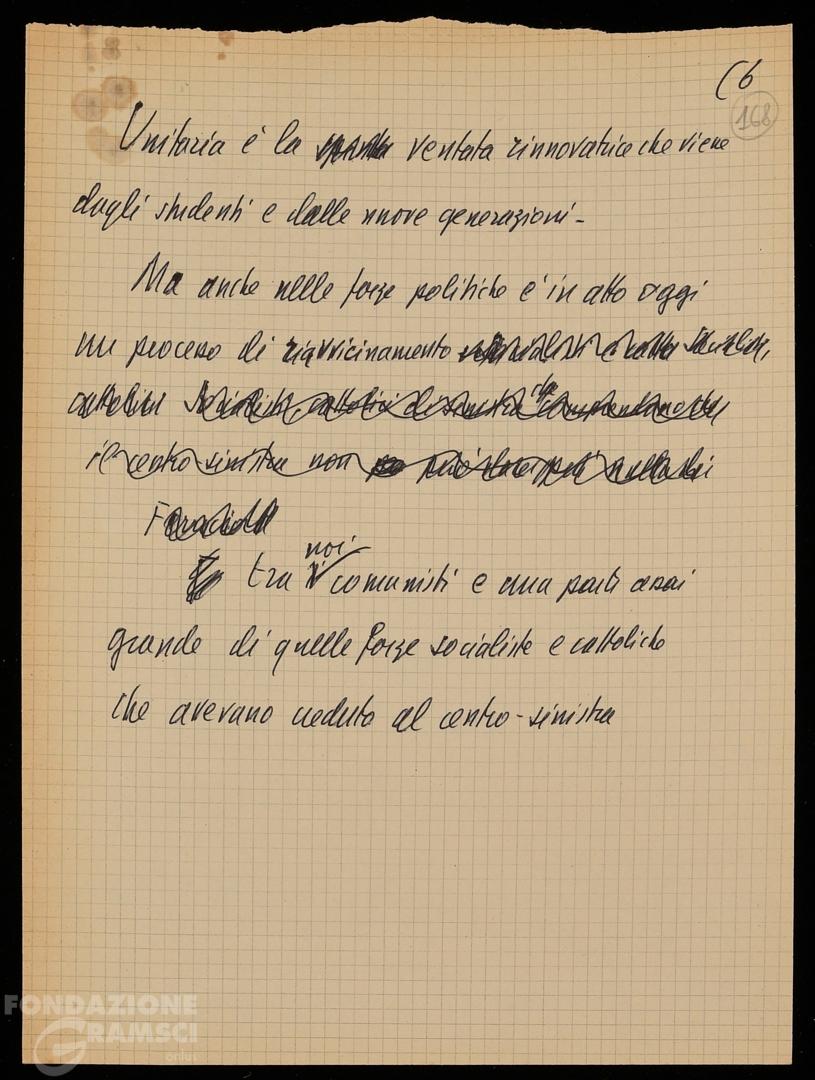 (6
168
Unitaria è la ventata rinnovatrice che viene
dagli studenti e dalle nuove generazioni -
Ma anche nelle forze politiche è in atto oggi
un processo di riavvicinamento
cattolici socialisti, cattolici di sinistra che
il centro sinistra non può
tra noi comunisti e una parte assai
grande di quelle forze socialiste e cattoliche
che avevano creduto al centro-sinistra
FONDAZIONE
GRAMSCI
onlus